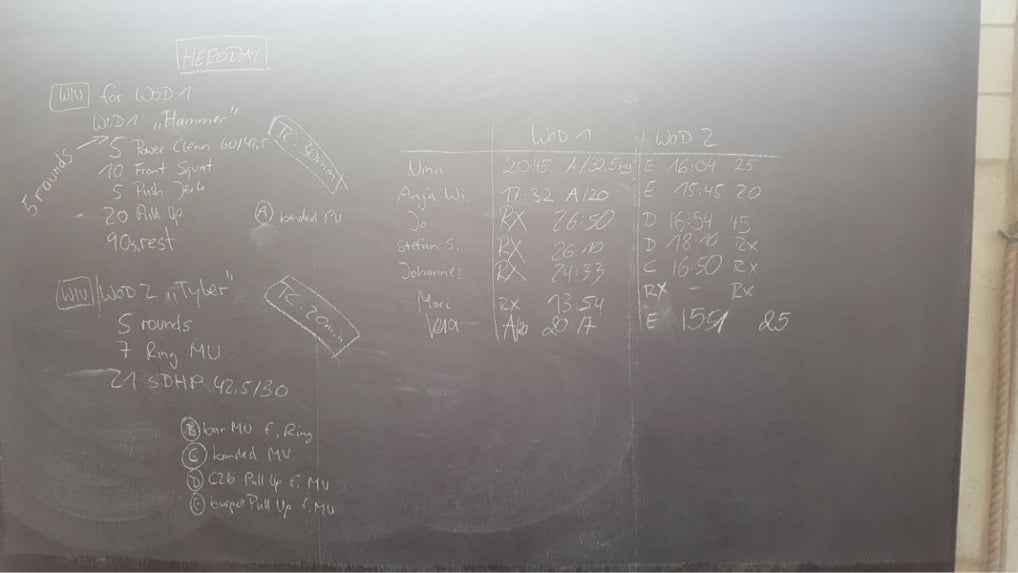 HERODAY
WU for WoD 1
WoD 1: „Hammer“
5 rounds
5 Power Clean 60/42,5
10 Front Squat
5 Push Jerk
20 Pull Up
90s. rest
TC: 30min
A banded PU
WU/WoD 2 „Tyler“
5 rounds
7 Ring MU
21 SDHP 42,5/30
TC: 20min
B bar MU f. Ring
C banded MU
D C2b Pull Up f. MU
E Pull Up f. MU
WoD 1 WoD 2
Nina 20:45 A/32,5kg E 16:04 25
Anja Wi. 17:32 A/20 E 15:45 20
Jo RX 26:50 D 16:54 45
Stefan S. RX 26:10 D 18:10 RX
Johannes RX 24:33 C 16:50 RX
Marc RX 13:54 RX - RX
Vera - 20 17 E 1551 25